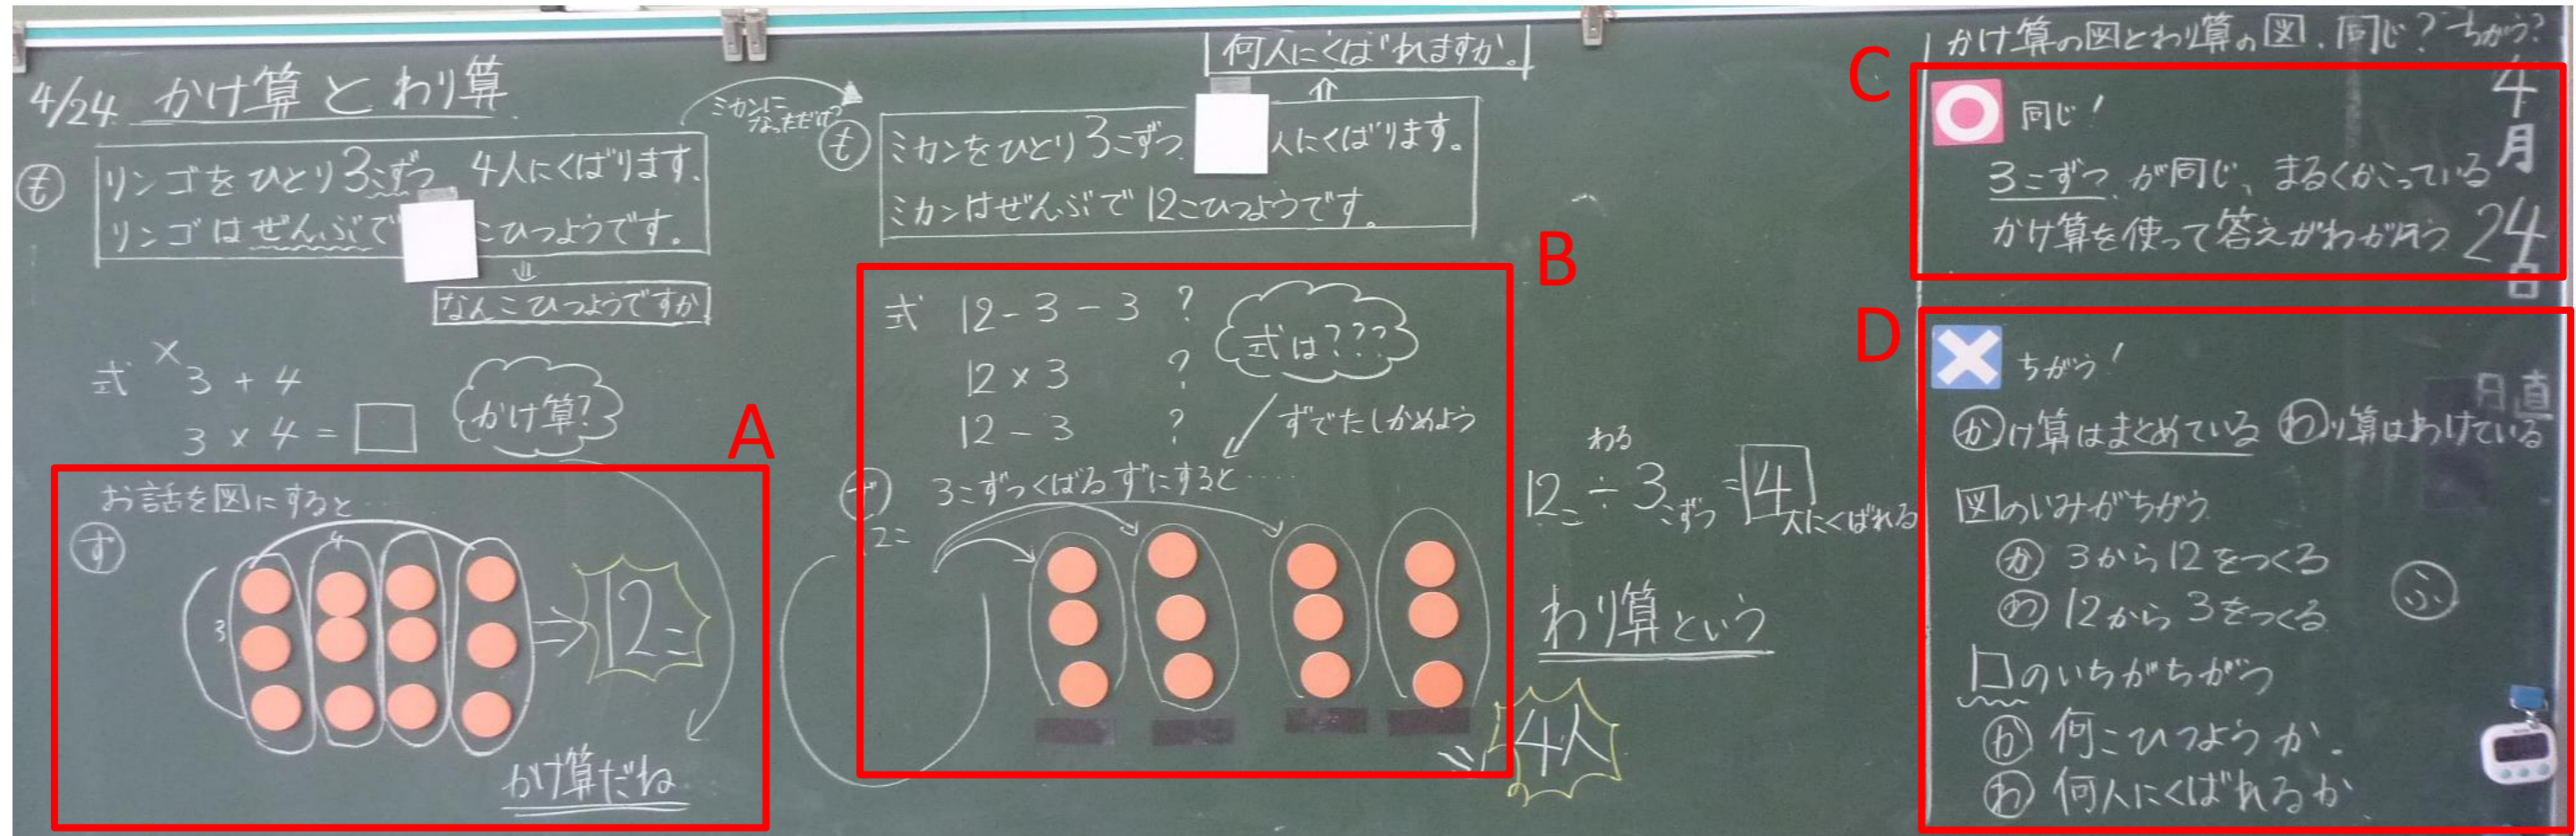 4/24 かけ算とわり算
も
リンゴをひとり3こずつ 4人にくばります。
リンゴはぜんぶで こひつようです。
⇓
なんこひつようですか
式 × 3 + 4
3 × 4 = □
かけ算?
A
お話を図にすると…
ず
4
3
⇒ 12こ
かけ算だね
ミカンに
なっただけ
何人にくばれますか。
⇑
も
ミカンをひとり3こずつ 人にくばります。
ミカンはぜんぶで12こひつようです。
B
式 12 - 3 - 3 ?
12 × 3 ?
12 - 3 ?
式は???
ずでたしかめよう
3こずつくばるずにすると……
12こ
4人
わる
12こ ÷ 3こずつ = 4人にくばれる
わり算という
かけ算の図とわり算の図、同じ?ちがう?
C
同じ!
3こずつが同じ、まるくかこっている
かけ算を使って答えがわかりそう
4月24日
D
ちがう!
かけ算はまとめている わり算はわけている
図のいみがちがう
か 3から12をつくる
わ 12から3をつくる
ふ
□のいちがちがう
か 何こひつようか。
わ 何人にくばれるか
日直